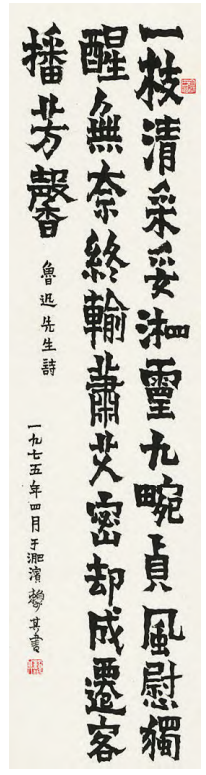 一枝清采妥湘靈九畹貞風慰獨
醒無奈終輸蕭艾密却成遷客
播芳馨
魯迅先生詩
一九七五年四月于淝濱 其書